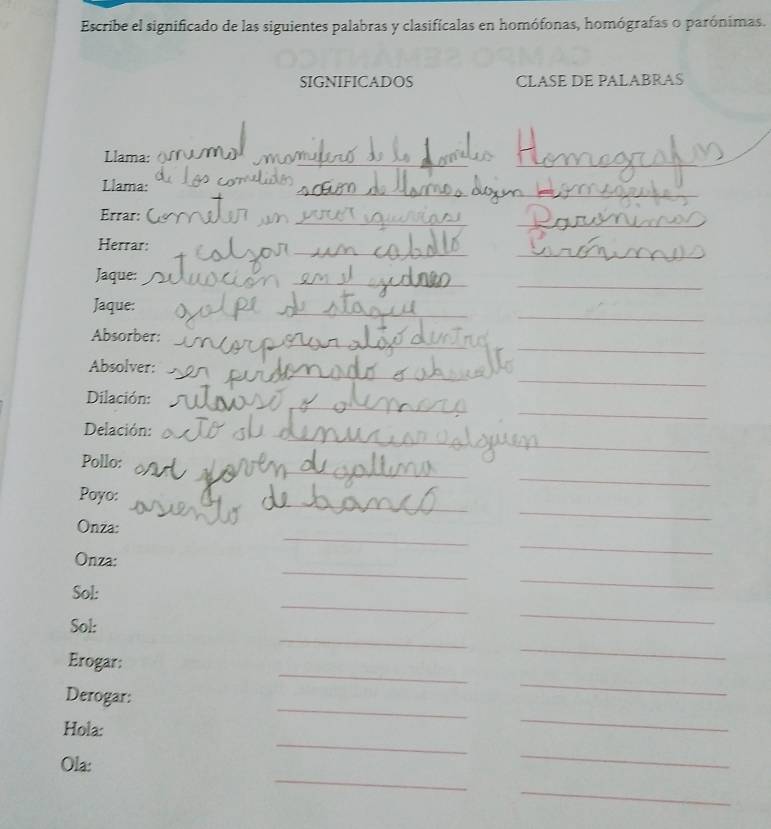 Escribe el significado de las siguientes palabras y clasifícalas en homófonas, homógrafas o parónimas.
SIGNIFICADOS CLASE DE PALABRAS
Llama: animal mamifero de la familia
Llama: de los camelidos acción de llamar
Errar: Cometer un error Paronimas
Herrar: calzar un caballo Parónimas
Jaque: situacion en el ajedres
Jaque: golpe de
Absorber: incorporar algo dentro
Absolver: ser perdonado o absuelto
Dilación: retraso o demora
Delación: acto de denunciar alguien
Pollo: ave joven de gallina
Poyo: asiento de banco
Onza:
Onza:
Sol:
Sol:
Erogar:
Derogar:
Hola:
Ola: